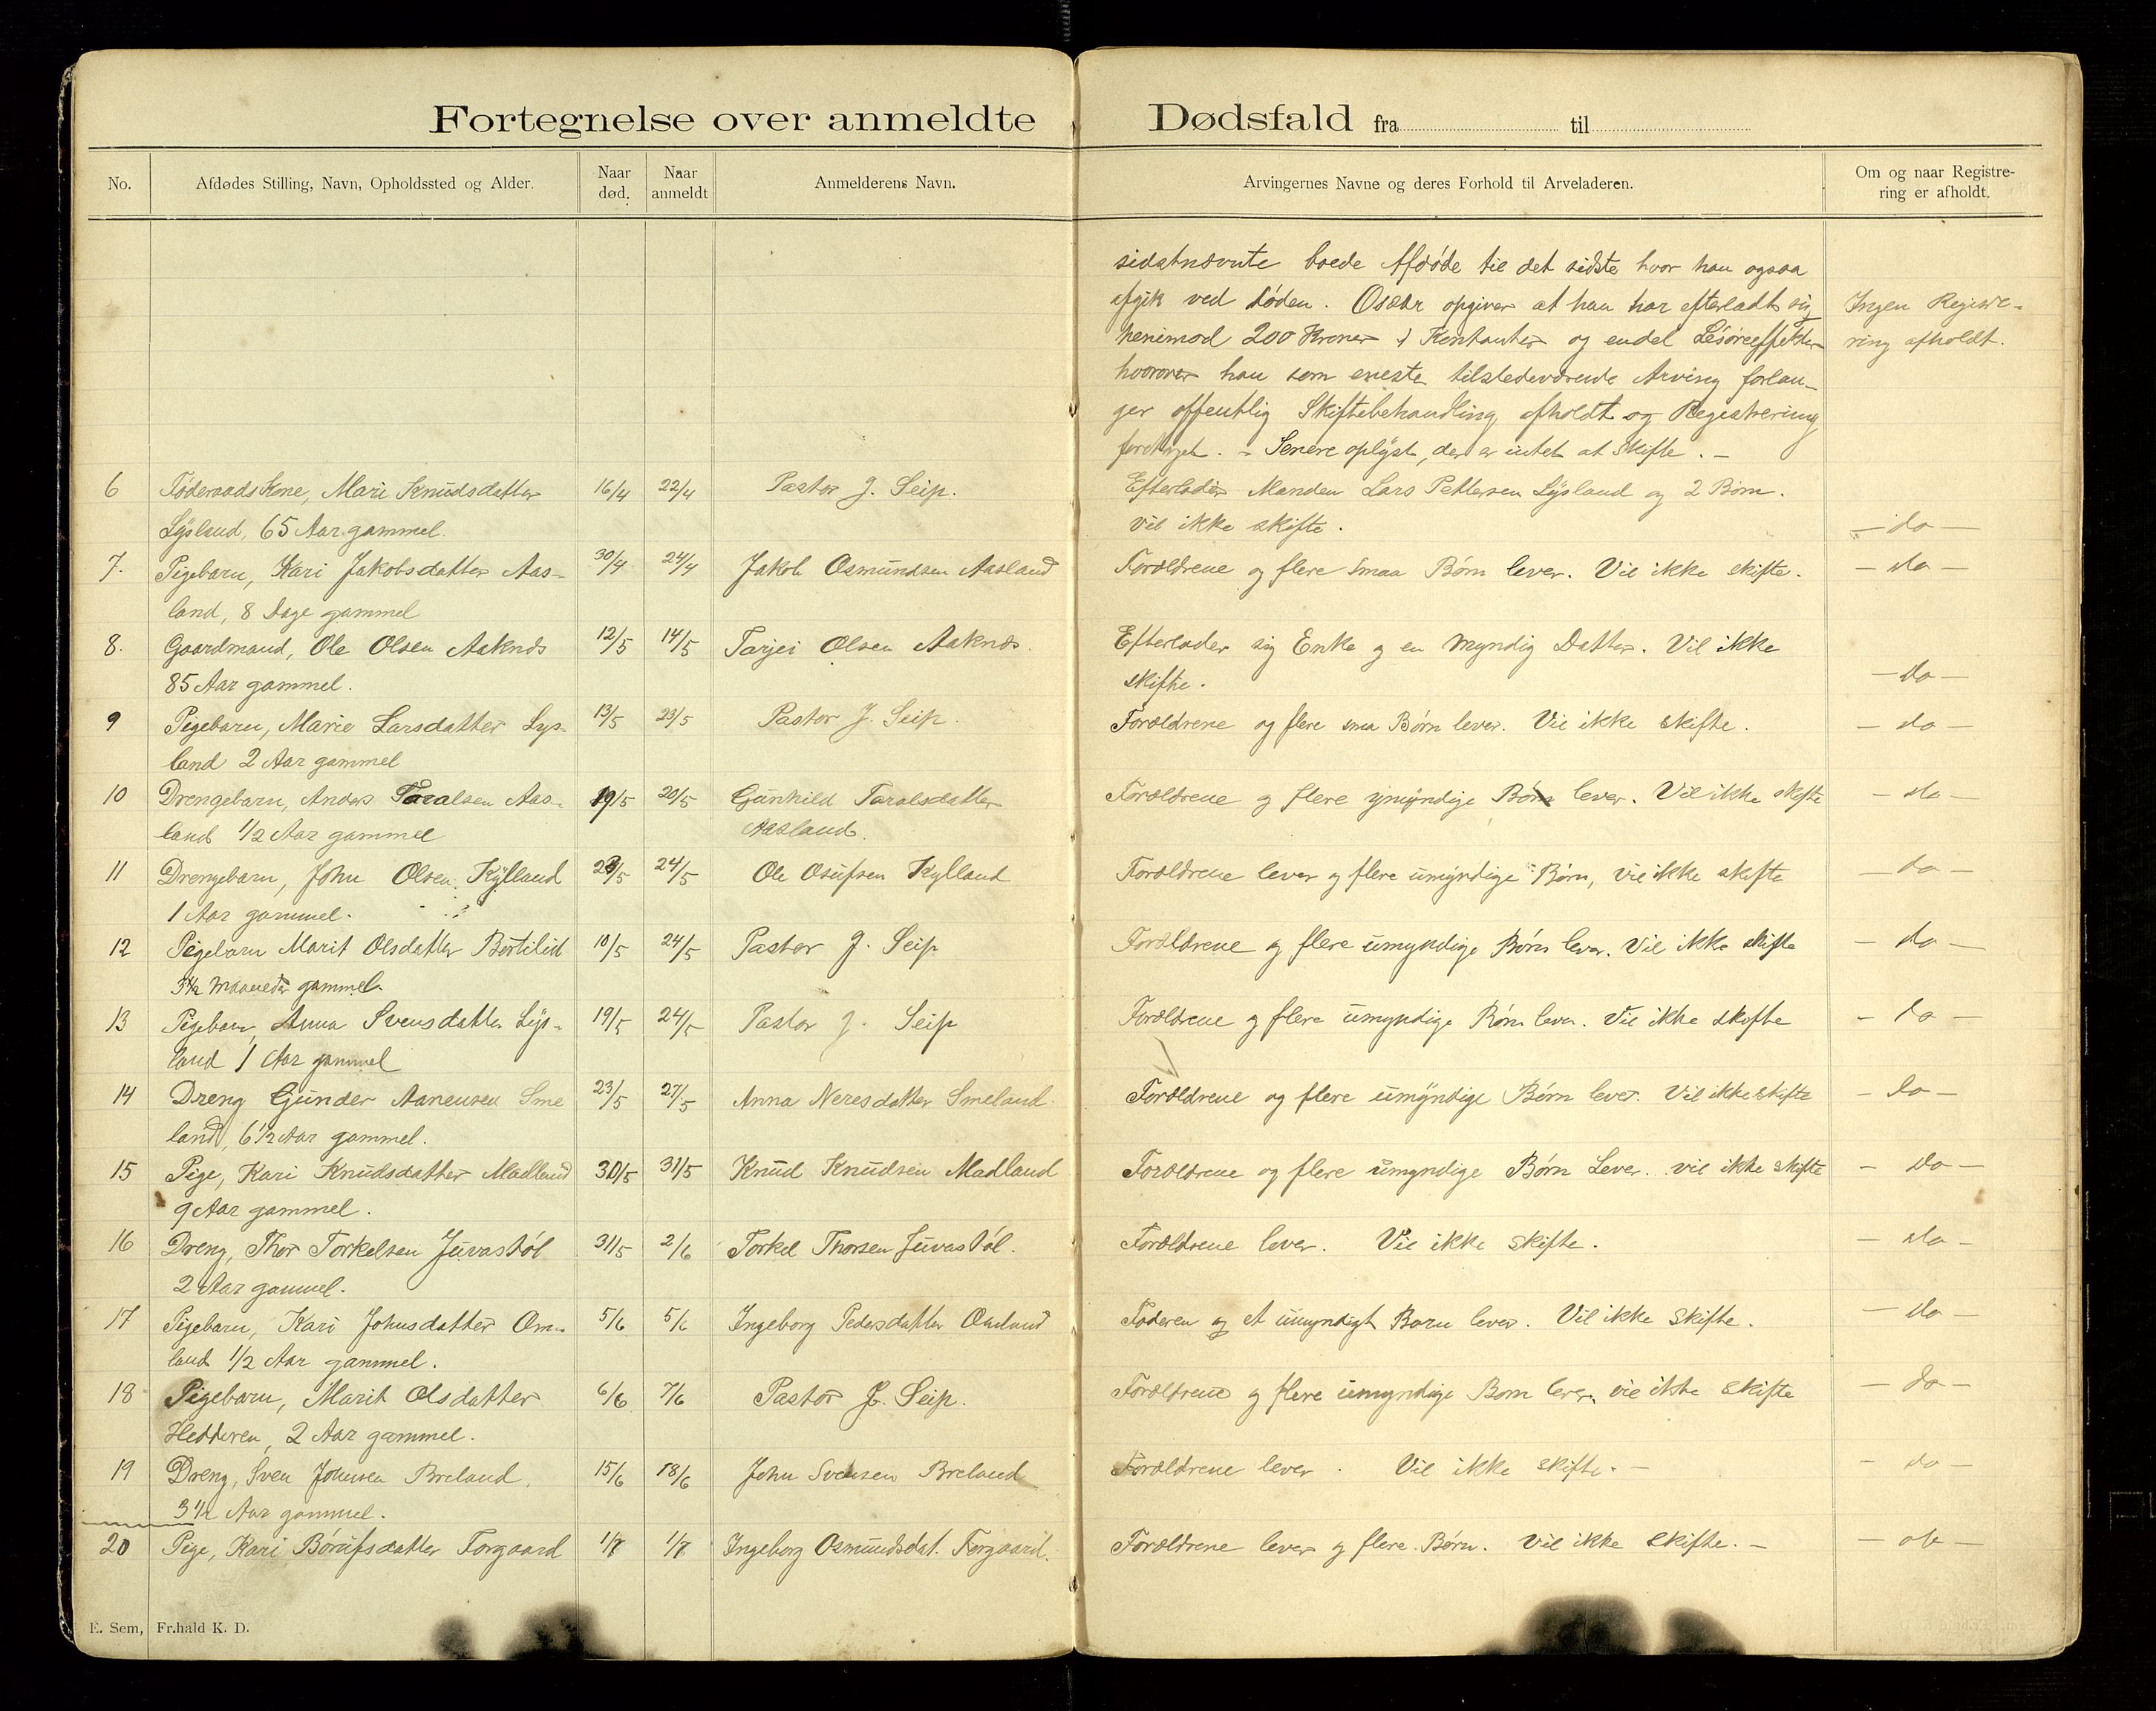 Fortegnelse over anmeldte Dødsfald fra til
No.
Afdødes Stilling, Navn, Opholdssted og Alder.
Naar død.
Naar anmeldt
Anmelderens Navn.
Arvingernes Navne og deres Forhold til Arveladeren.
Om og naar Registre-
ring er afholdt.
sidstnævnte boede Afdøde til det sidste hvor han ogsaa
afgik ved døden. Osædr opgiver at han har efterladt sig Ingen Registre-
henimod 200 Kroner i Kontanter og endel Løsøreeffekter ring afholdt.
hvorover han som eneste tilstedeværende Arving forlan-
ger offentlig Skiftebehandling afholdt og Registrering
foretaget. - Senere oplyst, der er intet at skifte. -
6 Føderaads Kone, Mari Knudsdatter 16/4 22/4 Pastor J. Seip. Efterlader Manden Lars Pettersen Lysland og 2 Børn.
Lysland, 65 Aar gammel. Vil ikke skifte. - do -
7. Pigebarn, Kari Jakobsdatter Aas- 30/4 24/4 Jakob Osmundsen Aasland Forældrene og flere smaa Børn lever. Vil ikke skifte. - do -
land, 8 Dage gammel
8. Gaardmand, Ole Olsen Aaknes 12/5 14/5 Tarjei Olsen Aaknes. Efterlader sig Enke og en Myndig Datter. Vil ikke
85 Aar gammel. skifte. - do -
9 Pigebarn, Marie Larsdatter Lys- 13/5 23/5 Pastor J. Seip. Forældrene og flere sma Børn lever. Vil ikke skifte. - do -
land 2 Aar gammel
10 Drengebarn, Anders Taralsen Aas- 19/5 20/5 Gunhild Taralsdatter Forældrene og flere umyndige Børn lever. Vil ikke skifte - do -
land 1/2 Aar gammel Aasland.
11 Drengebarn, John Olsen Kylland 23/5 24/5 Ole Osufsen Kylland Forældrene lever og flere umyndige Børn, vil ikke skifte - do -
1 Aar gammel.
12 Pigebarn Marit Olsdatter Bertilid 10/5 24/5 Pastor J. Seip Forældrene og flere umyndige Børn lever. Vil ikke skifte - do -
3 1/2 Maaneder gammel.
13 Pigebarn, Anna Svensdatter Lys- 19/5 24/5 Pastor J. Seip Forældrene og flere umyndige Børn lever. Vil ikke skifte - do -
land 1 Aar gammel
14 Dreng Gunder Aanensen Sme 23/5 27/5 Anna Neresdatter Smeland. Forældrene og flere umyndige Børn lever. Vil ikke skifte - do -
land, 6 1/2 Aar gammel.
15 Pige, Kari Knudsdatter Madland 31/5 31/5 Knud Knudsen Madland Forældrene og flere umyndige Børn Lever. vil ikke skifte - do -
9 Aar gammel.
16 Dreng, Thor Torkelsen Juvastøl 31/5 2/6 Torkel Thorsen Juvastøl. Forældrene lever. Vil ikke skifte. - do -
2 Aar gammel.
17 Pigebarn, Kari Johnsdatter Om- 5/6 5/6 Ingeborg Pedersdatter Omland Faderen og et umyndigt Barn lever. Vil ikke skifte. - do -
land 1/2 Aar gammel.
18 Pigebarn, Marit Olsdatter 6/6 7/6 Pastor J. Seip. Forældrene og flere umyndige Børn lever. vil ikke skifte - do -
Hedderen, 2 Aar gammel.
19 Dreng, Sven Johnsen Breland, 15/6 18/6 John Svensen Breland Forældrene lever. Vil ikke skifte. - - do -
3 1/2 Aar gammel.
20 Pige, Kari Børufsdatter Torgaard 1/7 1/7 Ingeborg Osmundsdat. Torgaard. Forældrene lever og flere Børn. Vil ikke skifte. - - do -
E. Sem, Fr.hald K. D.